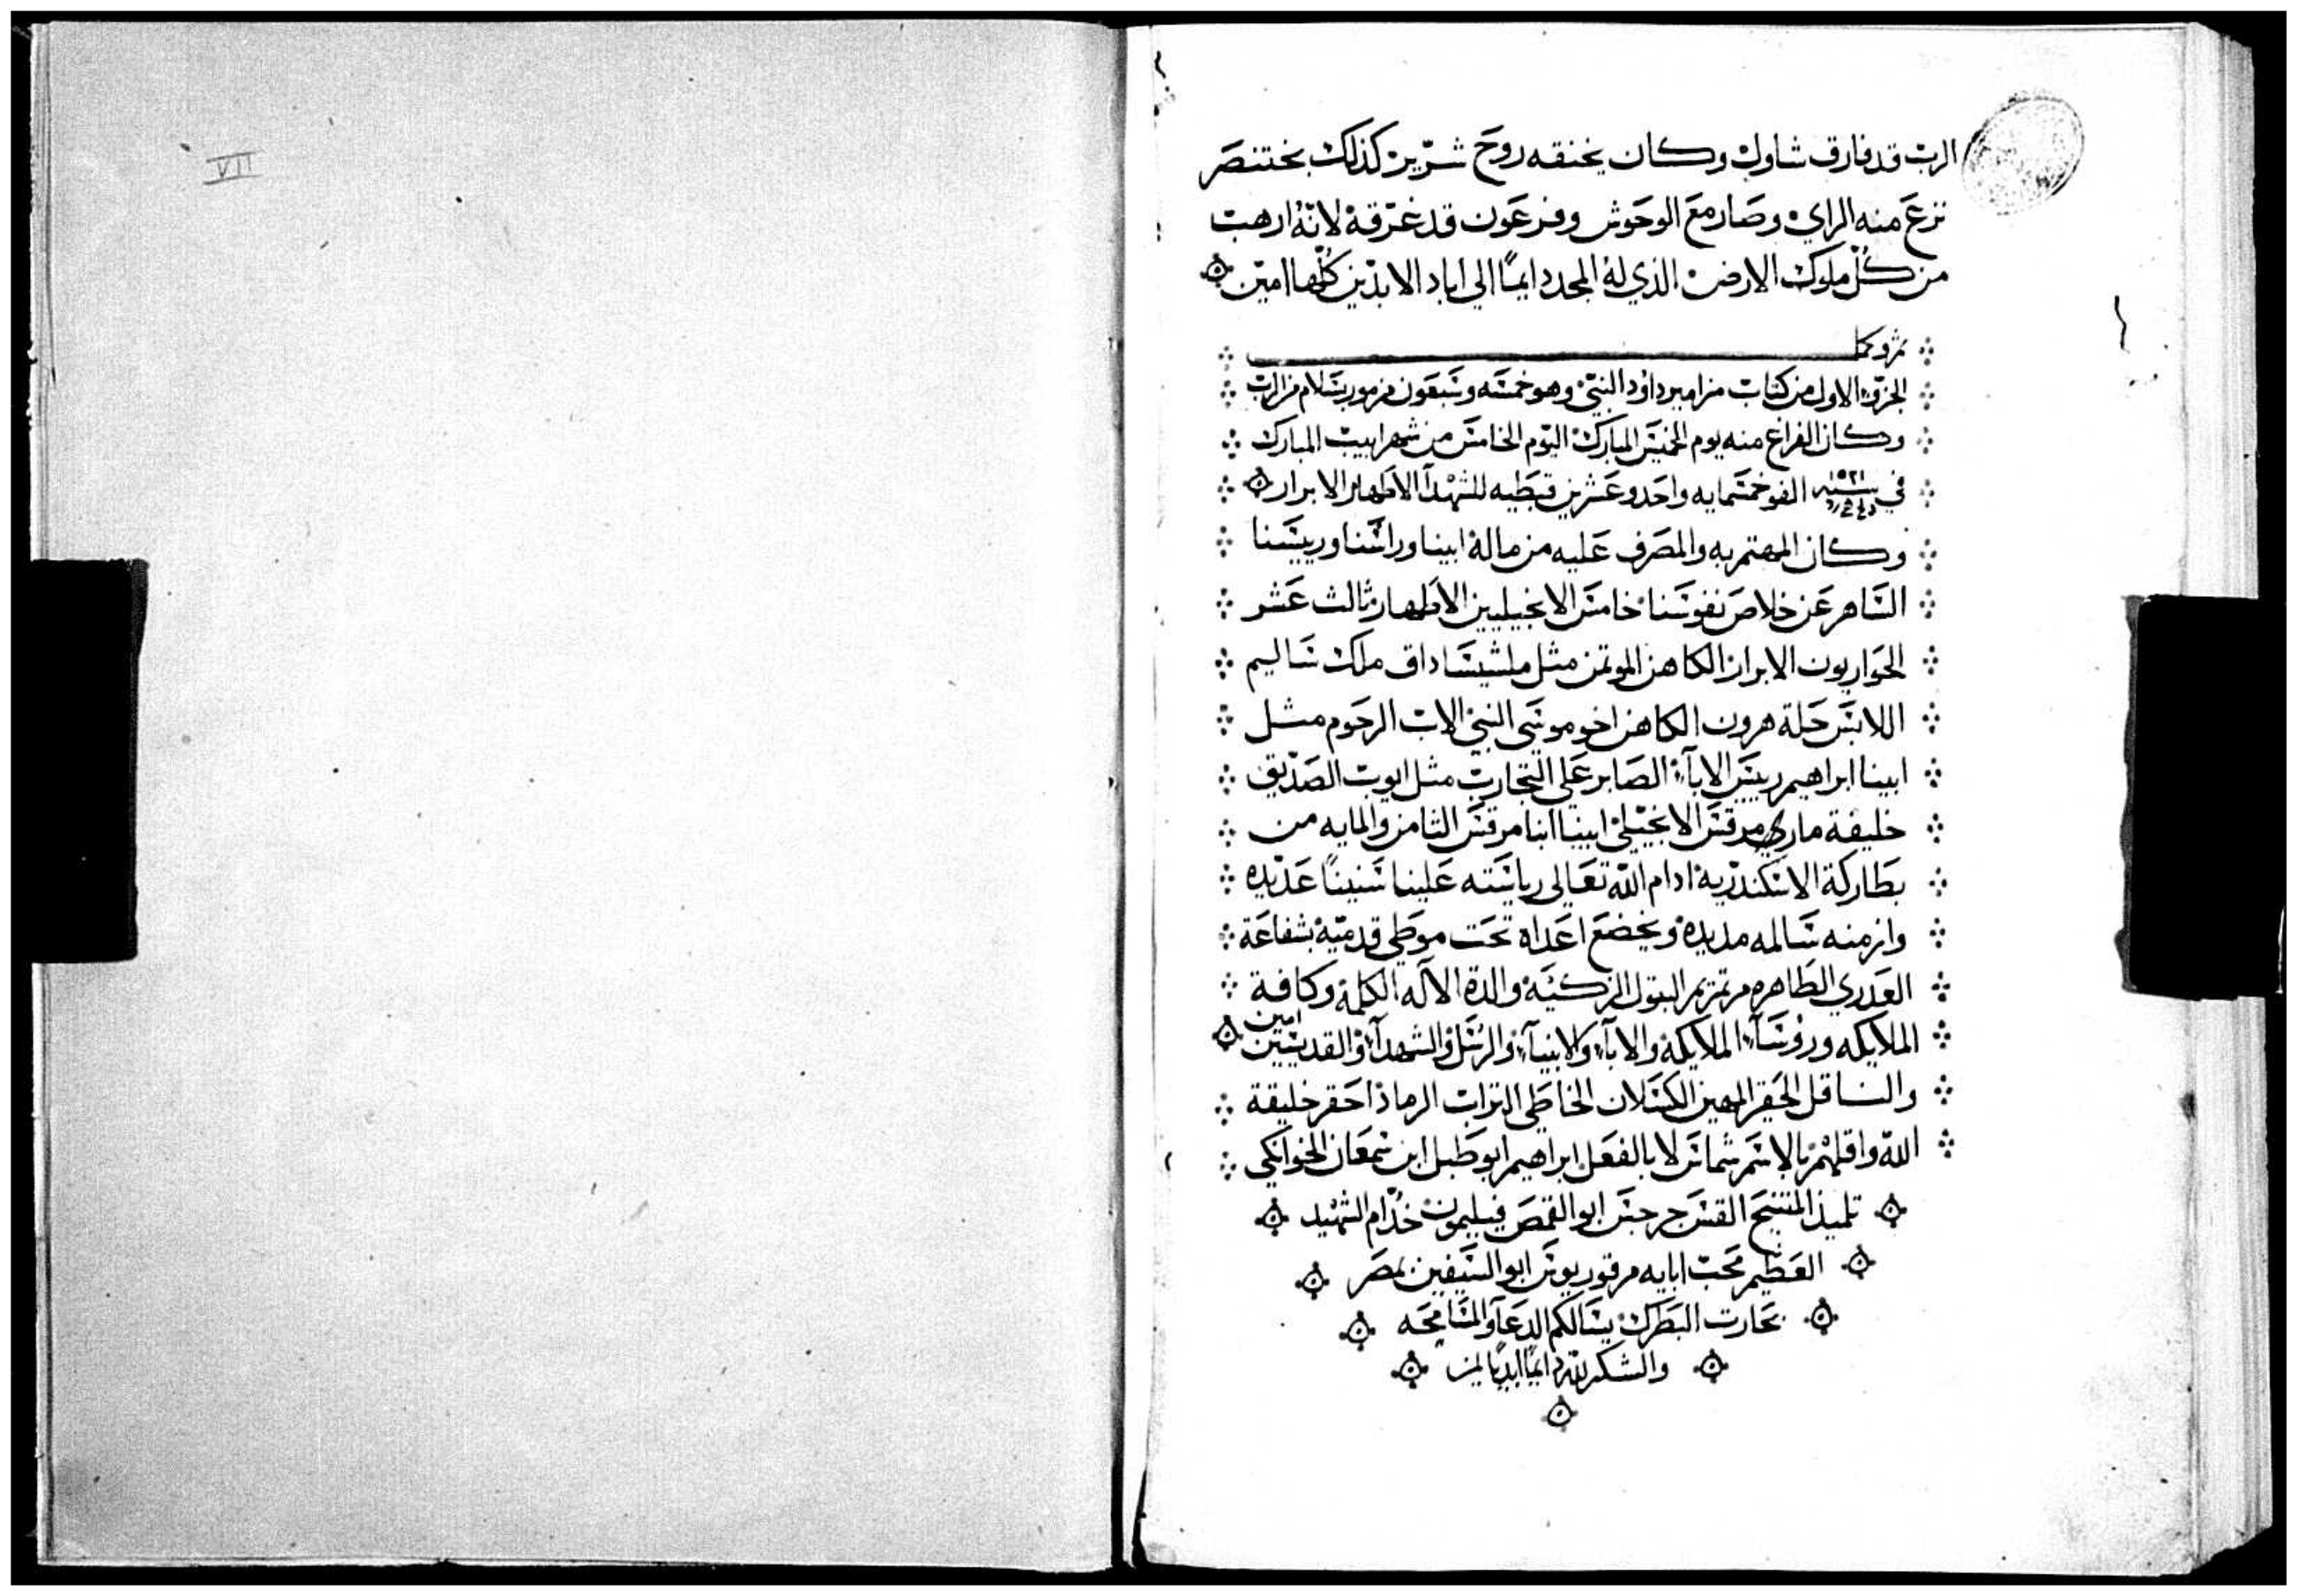 VII
الرب قد فارق شاول وكان يخنقه روح شرير كذلك بختنصر
نزع منه الراي وصار مع الوحوش وفرعون قد غرقه لانه ارهب
من كل ملوك الارض الذي له المجد دايمًا الي اباد الابدين كلها امين
تم وكمل
الجزؤ الاول من كتاب مزامير داؤد النبي وهو خمسه وسبعون مزمور بسلام من الرب
وكان الفراغ منه يوم الخميس المبارك اليوم الخامس من شهر ابيب المبارك
في سنة ١٥٢١ الف وخمسمايه واحد وعشرين قبطيه للشهدآ الاطهار الابرار
وكان المهتم به والمصرف عليه من ماله ابينا وراسنا ورييسنا
الساهر عن خلاص نفوسنا خامس الانجيليين الاطهار ثالث عشر
الحواريون الابرار الكاهن الموتمن مثل ملشيساداق ملك ساليم
اللابس حلة هرون الكاهن اخو موسي النبي الاب الرحوم مثل
ابينا ابراهيم رييس الابآء الصابر علي التجارب مثل ايوب الصديق
خليفة ماري مرقس الانجيلي ابينا انبا مرقس الثامن والمايه من
بطاركة الاسكندريه ادام الله تعالي رياسته علينا سنينًا عديده
وازمنه سالمه مديده ويخضع اعداه تحت موطي قدميه بشفاعة
العدري الطاهره مرتمريم البتول الزكيه والدة الاله الكلمة وكافة
الملايكه وروسآء الملايكة والابآء والانبيآء والرسل والشهدآء والقديسين امين
والناقل الحقير المهين الكسلان الخاطي التراب الرماد احقر خليقة
الله واقلهم بالاسم شماس لا بالفعل ابراهيم ابو طبل ابن سمعان الخوانكي
تلميذ المتنيح القس جرجس ابو القمص فيليمون خدام الشهيد
العظيم محب ابايه مرقوريوس ابو السيفين بمصر
بحارت البطرك يسالكم الدعآ والمسامحه
والشكر لله دايمًا ابديًا